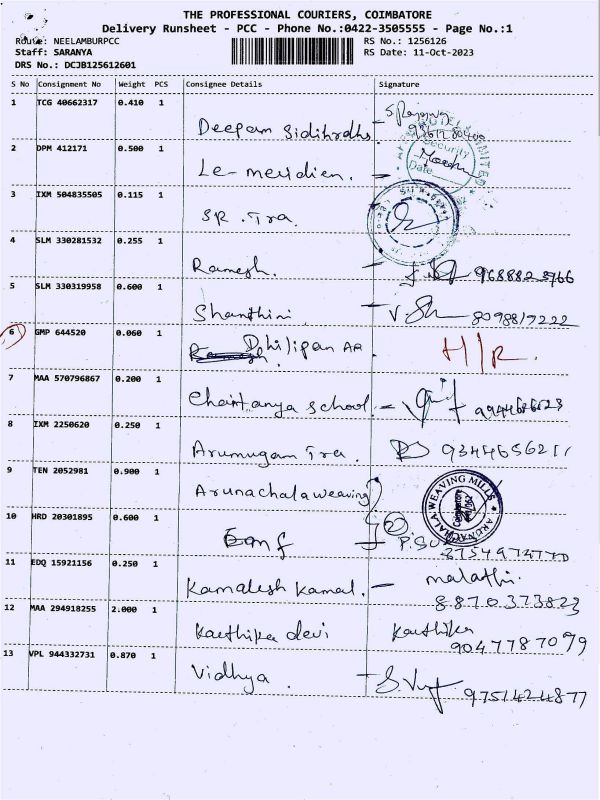 THE PROFESSIONAL COURIERS, COIMBATORE
Delivery Runsheet - PCC - Phone No.:0422-3505555 - Page No.:1
Route: NEELAMBURPCC
RS No.: 1256126
Staff: SARANYA
RS Date: 11-Oct-2023
DRS No.: DCJB125612601
S No Consignment No Weight PCS Consignee Details Signature
1 TCG 40662317 0.410 1 Deepam Sidihrdhs
2 DPM 412171 0.500 1 Le-meridien. Security Date
3 IXM 504835505 0.115 1 SR. Tra.
4 SLM 330281532 0.255 1 Ramesh.
5 SLM 330319958 0.600 1 Shanthini V.Sh 8098817222
6 GMP 644520 0.060 1 Dhilipan AR H/R.
7 MAA 570796867 0.200 1 Chaitanya School
8 IXM 2250620 0.250 1 Arumugam Tra. 9344656211
9 TEN 2052981 0.900 1 Arunachala weaving ARUNACHALA WEAVING MILLS
10 HRD 20301895 0.600 1 2
11 EDQ 15921156 0.250 1 Kamalesh Kamal. malathi.
8870373823
12 MAA 294918255 2.000 1 Karthika devi Karthika
9047787099
13 VPL 944332731 0.870 1 Vidhya 9751424877